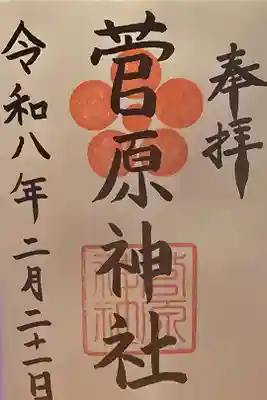 奉拝
菅原神社
令和八年二月二十一日
菅原神社